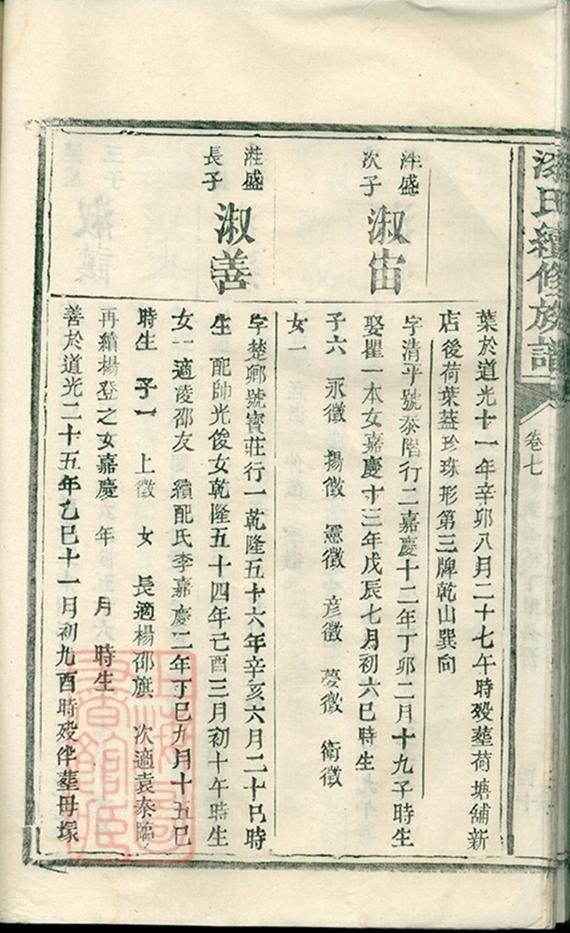 氏續修族譜
卷七
葉於道光十一年辛卯八月二十七午時殁塟荷塘舖新
店後荷葉蓋珍珠形第三牌乾山巽向
盛次子 淑宙
字清平號泰階行二嘉慶十二年丁卯二月十九子時生
娶瞿一本女嘉慶十三年戊辰七月初六巳時生
子六 永徵 揚徵 憲徵 彦徵 夢徵 衛徵
女一
盛長子 淑善
字楚卿號寳莊行一乾隆五十六年辛亥六月二十巳時
生 配帥光俊女乾隆五十四年己酉三月初十午時生
女一適凌邵友 續配氏李嘉慶二年丁巳九月十五巳
時生 子一 上徵 女 長適楊邵旗 次適袁泰臨
再續楊登之女嘉慶 年 月 時生
善於道光二十五年乙巳十一月初九酉時殁伴塟母塚